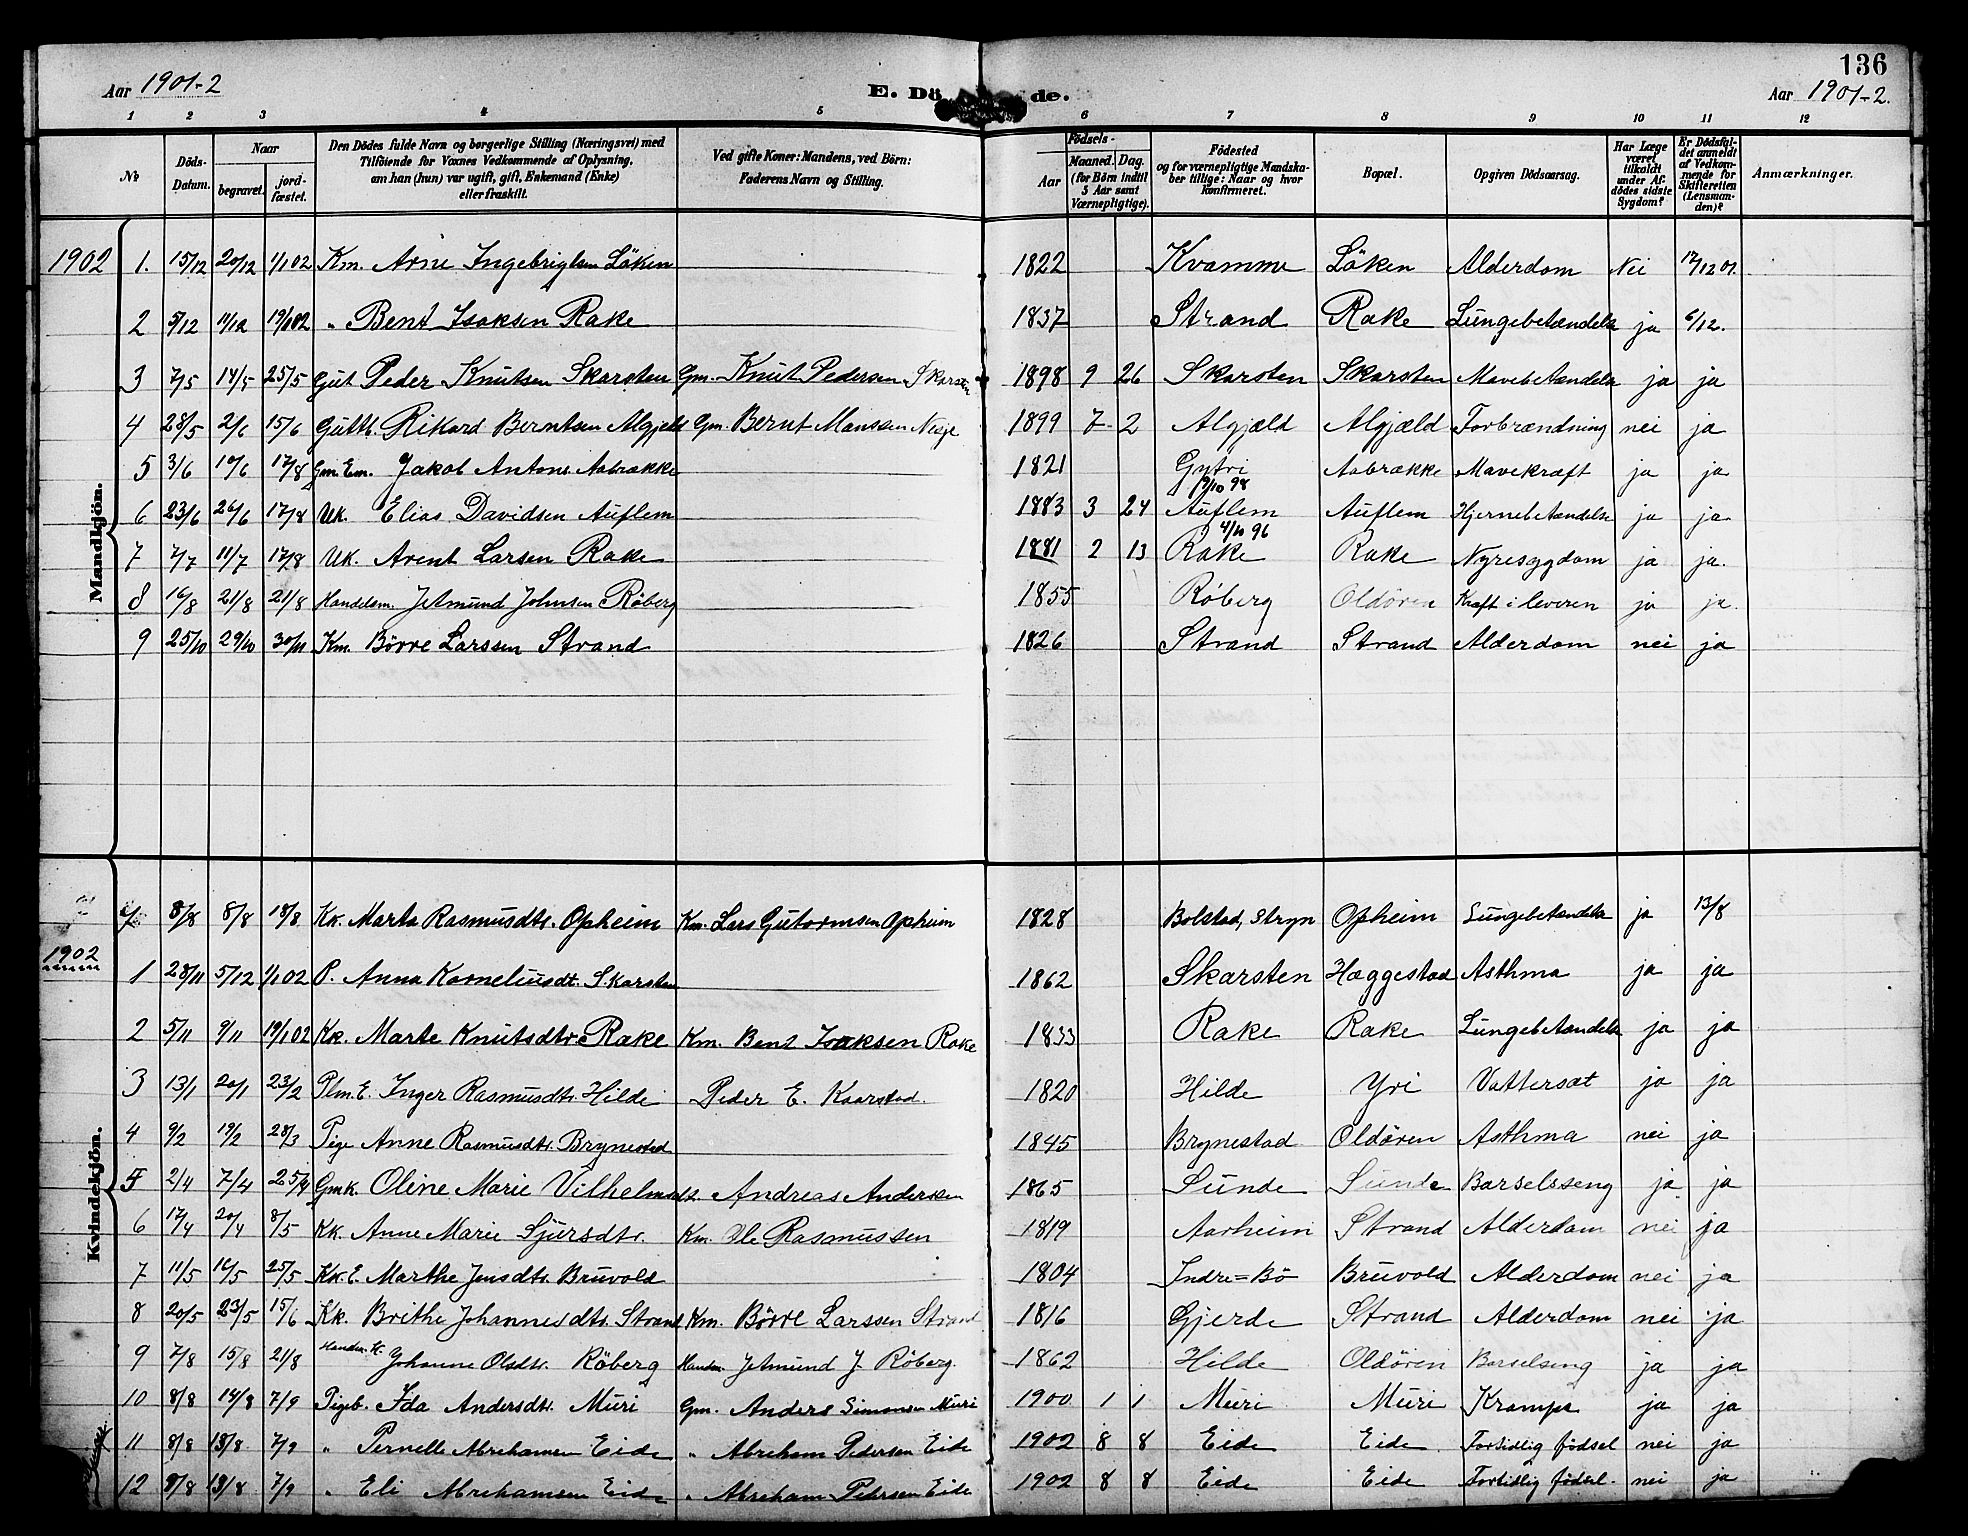 136
Aar 1901-2
E. Dö de.
Aar 1901-2.
1 2 3 4 5 6 7 8 9 10 11 12
No
Döds-Datum.
Naar
begravet.
jord-fæstet.
Den Dödes fulde Navn og borgerlige Stilling (Næringsvei) med
Tilföiende for Voxnes Vedkommende af Oplysning,
om han (hun) var ugift, gift, Enkemand (Enke)
eller fraskilt.
Ved gifte Koner: Mandens, ved Börn:
Faderens Navn og Stilling.
Födsels-
Aar
Maaned. Dag.
(for Börn indtil
5 Aar samt
Værnepligtige).
Födested
og for værnepligtige Mandska-
ber tillige: Naar og hvor
konfirmeret.
Bopæl.
Opgiven Dödsaarsag.
Har Læge
været
tilkaldt
under Af-
dödes sidste
Sygdom?
Er Dödsfal-
det anmeldt
af Vedkom-
mende for
Skifteretten
(Lensman-
den)?
Anmærkninger.
Mandkjön.
1902 1. 15/12 20/12 1/1 02 Km. Arne Ingebrigtsen Löken 1822 Kvamme Löken Alderdom Nei 17/12 01
2 5/12 11/12 19/1 02 " Bent Isaksen Rake 1837 Strand Rake Lungebetændelse ja 6/12.
3 7/5 14/5 25/5 Gut Peder Knutsen Skarsten Gm. Knut Pedersen Skarsten 1898 9 26 Skarsten Skarsten Mavebetændelse ja ja
4 28/5 2/6 15/6 Gutb. Rikard Berntsen Algjeld Gm. Bernt Monssen Nesje 1899 7 2 Algjæld Algjæld Forbrænding nei ja
5 3/6 10/6 17/8 Gm. Em. Jakob Antons Aabrække 1821 Gytri Aabrække Mavekræft ja ja
9/10 98
6 23/6 26/6 17/8 UK. Elias Davidsen Auflem 1883 3 24 Auflem Auflem Hjernebetændelse ja ja
4/10 96
7 7/7 11/7 17/8 UK. Arent Larsen Rake 1881 2 13 Rake Rake Nyresygdom ja ja.
8 16/8 21/8 21/8 Handelsm. Jetmund Johnsen Röberg 1855 Röberg Oldören Kræft i leveren ja ja.
9 25/10 29/10 30/11 Km. Börre Larssen Strand 1826 Strand Strand Alderdom nei ja
Kvindekjön.
8/8 8/8 18/8 Kk. Marta Rasmusdtr. Opheim Km. Lars Gutormsen Opheim 1828 Bolstad, Stryn Opheim Lungebetændelse ja 13/8
1902
1 28/11 5/12 1/1 02 P. Anna Korneliusdt. Skarsten 1862 Skarsten Hæggestad Asthma ja ja
2 5/11 9/11 19/1 02 Kk. Marte Knutsdtr. Rake Km. Bent Isaksen Rake 1833 Rake Rake Lungebetændelse ja ja
3 13/1 20/1 23/2 Plm. E. Inger Rasmusdtr. Hilde Peder E. Kaarstad. 1820 Hilde Yri Vattersot ja ja
4 9/2 19/2 28/3 Pige Anne Rasmusdtr. Brynestad 1845 Brynestad Oldören Asthma nei ja
5 2/4 7/4 25/4 Gmk. Oline Marie Vilhelmsdt. Andreas Andersen 1865 Sunde Sunde Barselsseng ja ja
6 17/4 20/4 8/5 Kk. Anne Marie Sjursdtr. Km. Ole Rasmussen 1819 Aarheim Strand Alderdom nei ja
7 11/5 16/5 25/5 Kk. E. Marthe Jensdtr. Bruvold 1804 Indre=Bö Bruvold Alderdom nei ja
8 20/5 23/5 15/6 Kk. Brithe Johannesdtr. Strand Km. Börre Larssen Strand 1816 Gjerde Strand Alderdom nei ja
9 7/8 15/8 21/8 Handm. K. Johanne Olsdtr. Röberg Handm. Jetmund J. Röberg. 1862 Hilde Oldören Barselseng ja ja
10 8/8 14/8 7/9 Pigeb. Ida Andersdtr. Muri Gm. Anders Simonsen Muri 1900 1 1 Muri Muri Krampe ja ja
11 8/8 13/8 7/9 " Pernelle Abrehamsen Eide " Abreham Pedersen Eide 1902 8 8 Eide Eide Fortidlig födsel nei ja
12 8/8 13/8 7/9 " Eli Abrehamsen Eide " Abreham Pedersen Eide 1902 8 8 Eide Eide Fortidlig födsel. nei ja